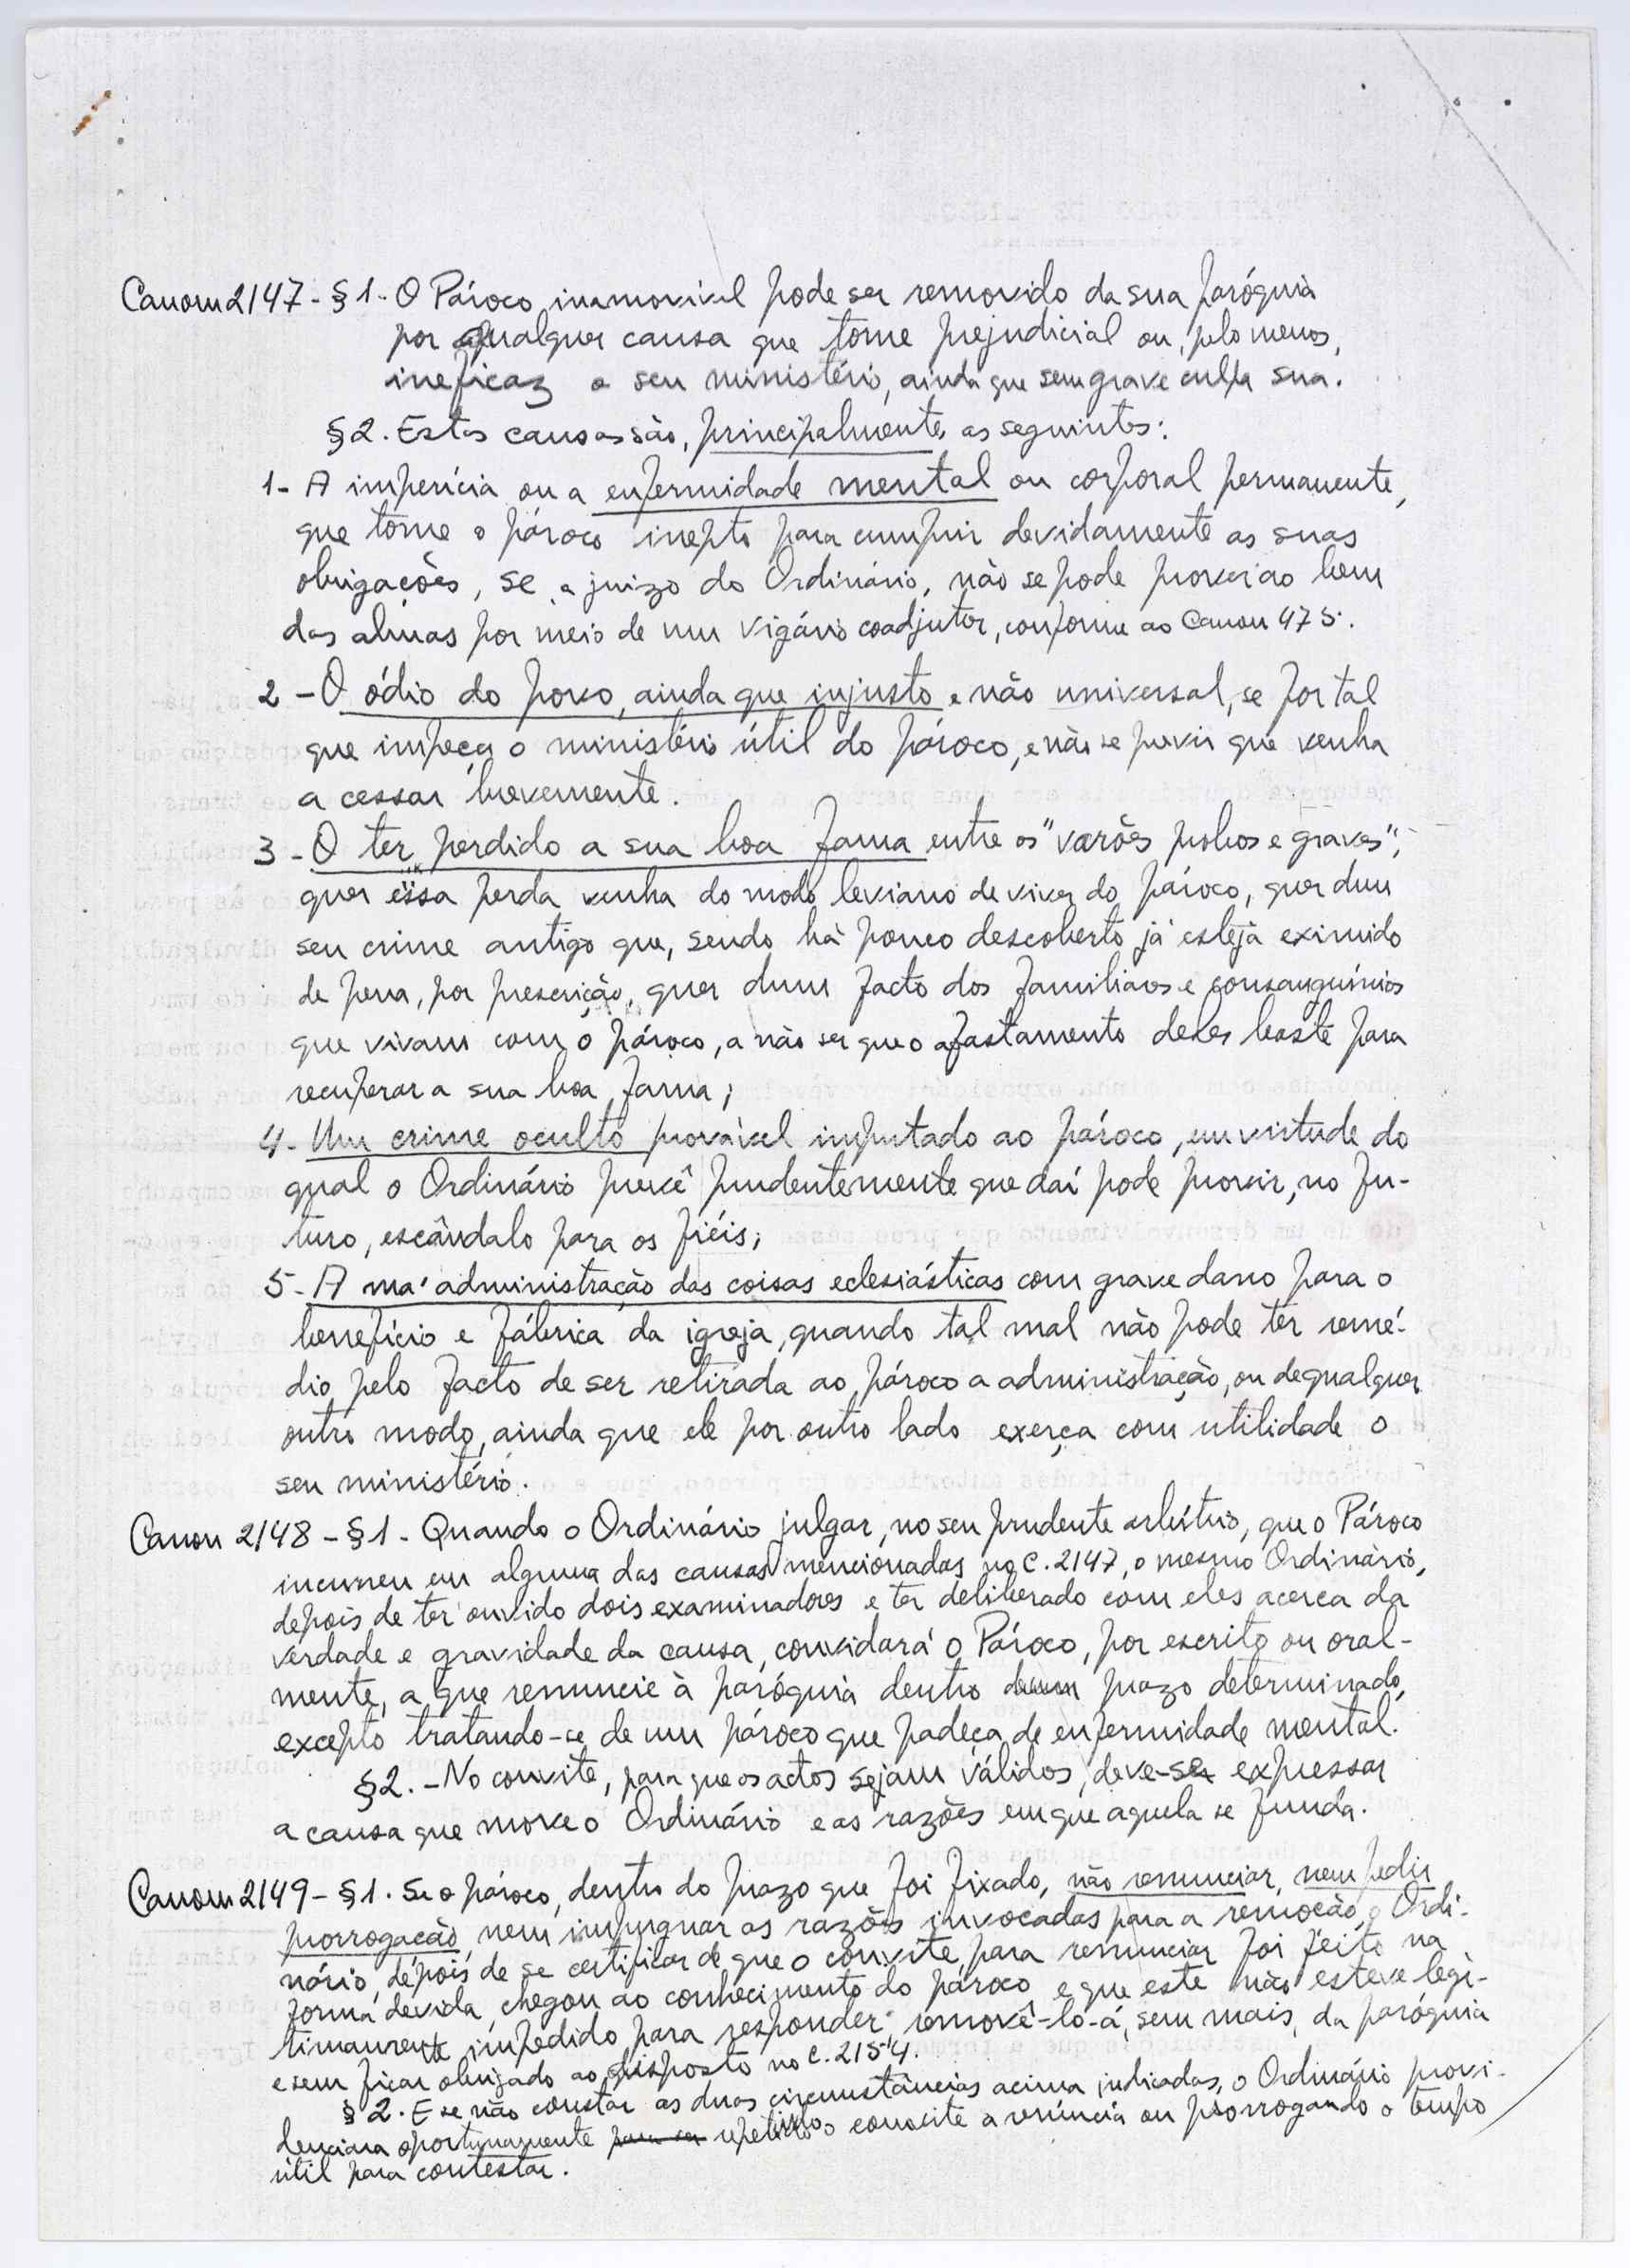 Canon 2147 - § 1 - O Pároco inamovivel pode ser removido da sua paróquia
por qualquer causa que torne prejudicial ou, pelo menos,
ineficaz o seu ministério, ainda que sem grave culpa sua.
§ 2. Estas causas são, principalmente, as seguintes:
1 - A imperícia ou a enfermidade mental ou corporal permanente,
que torne o pároco inepto para cumprir devidamente as suas
obrigações, se, a juizo do Ordinário, não se pode prover ao bem
das almas por meio de um vigário coadjutor, conforme ao Canon 475.
2 - O ódio do povo, ainda que injusto e não universal, se for tal
que impeça o ministério útil do pároco, e não se previr que venha
a cessar brevemente.
3 - O ter perdido a sua boa fama entre os "varões probos e graves",
quer essa perda venha do modo leviano de viver do pároco, quer dum
seu crime antigo que, sendo há pouco descoberto já esteja eximido
de pena, por prescrição, quer dum facto dos familiares e consanguínios
que vivam com o pároco, a não ser que o afastamento deles baste para
recuperar a sua boa fama;
4 - Um crime oculto provável imputado ao pároco, em virtude do
qual o Ordinário prevê prudentemente que daí pode provir, no fu-
turo, escândalo para os fiéis;
5 - A má administração das coisas eclesiásticas com grave dano para o
benefício e fábrica da igreja, quando tal mal não pode ter remé-
dio pelo facto de ser retirada ao pároco a administração, ou de qualquer
outro modo, ainda que ele por outro lado exerça com utilidade o
seu ministério.
Canon 2148 - § 1 - Quando o Ordinário julgar, no seu prudente arbítrio, que o Pároco
incorreu em alguma das causas mencionadas no C. 2147, o mesmo Ordinário,
depois de ter ouvido dois examinadores e ter deliberado com eles acerca da
verdade e gravidade da causa, convidará o Pároco, por escrito ou oral-
mente, a que renuncie à paróquia dentro dum prazo determinado,
excepto tratando-se de um pároco que padeça de enfermidade mental.
§ 2. - No convite, para que os actos sejam válidos, deve-se expressar
a causa que move o Ordinário e as razões em que aquela se funda.
Canon 2149 - § 1. Se o pároco, dentro do prazo que foi fixado, não renunciar, nem pedir
prorrogação, nem impugnar as razões invocadas para a remoção, o Ordi-
nário, depois de se certificar de que o convite para renunciar foi feito na
forma devida, chegou ao conhecimento do pároco e que este não esteve legì-
timamente impedido para responder, removê-lo-á, sem mais, da paróquia
e sem ficar obrigado ao disposto no C. 2154.
§ 2. E se não constar as duas circunstâncias acima indicadas, o Ordinário provi-
denciara oportunamente repetindo o convite a renúncia ou prorrogando o tempo
útil para contestar.